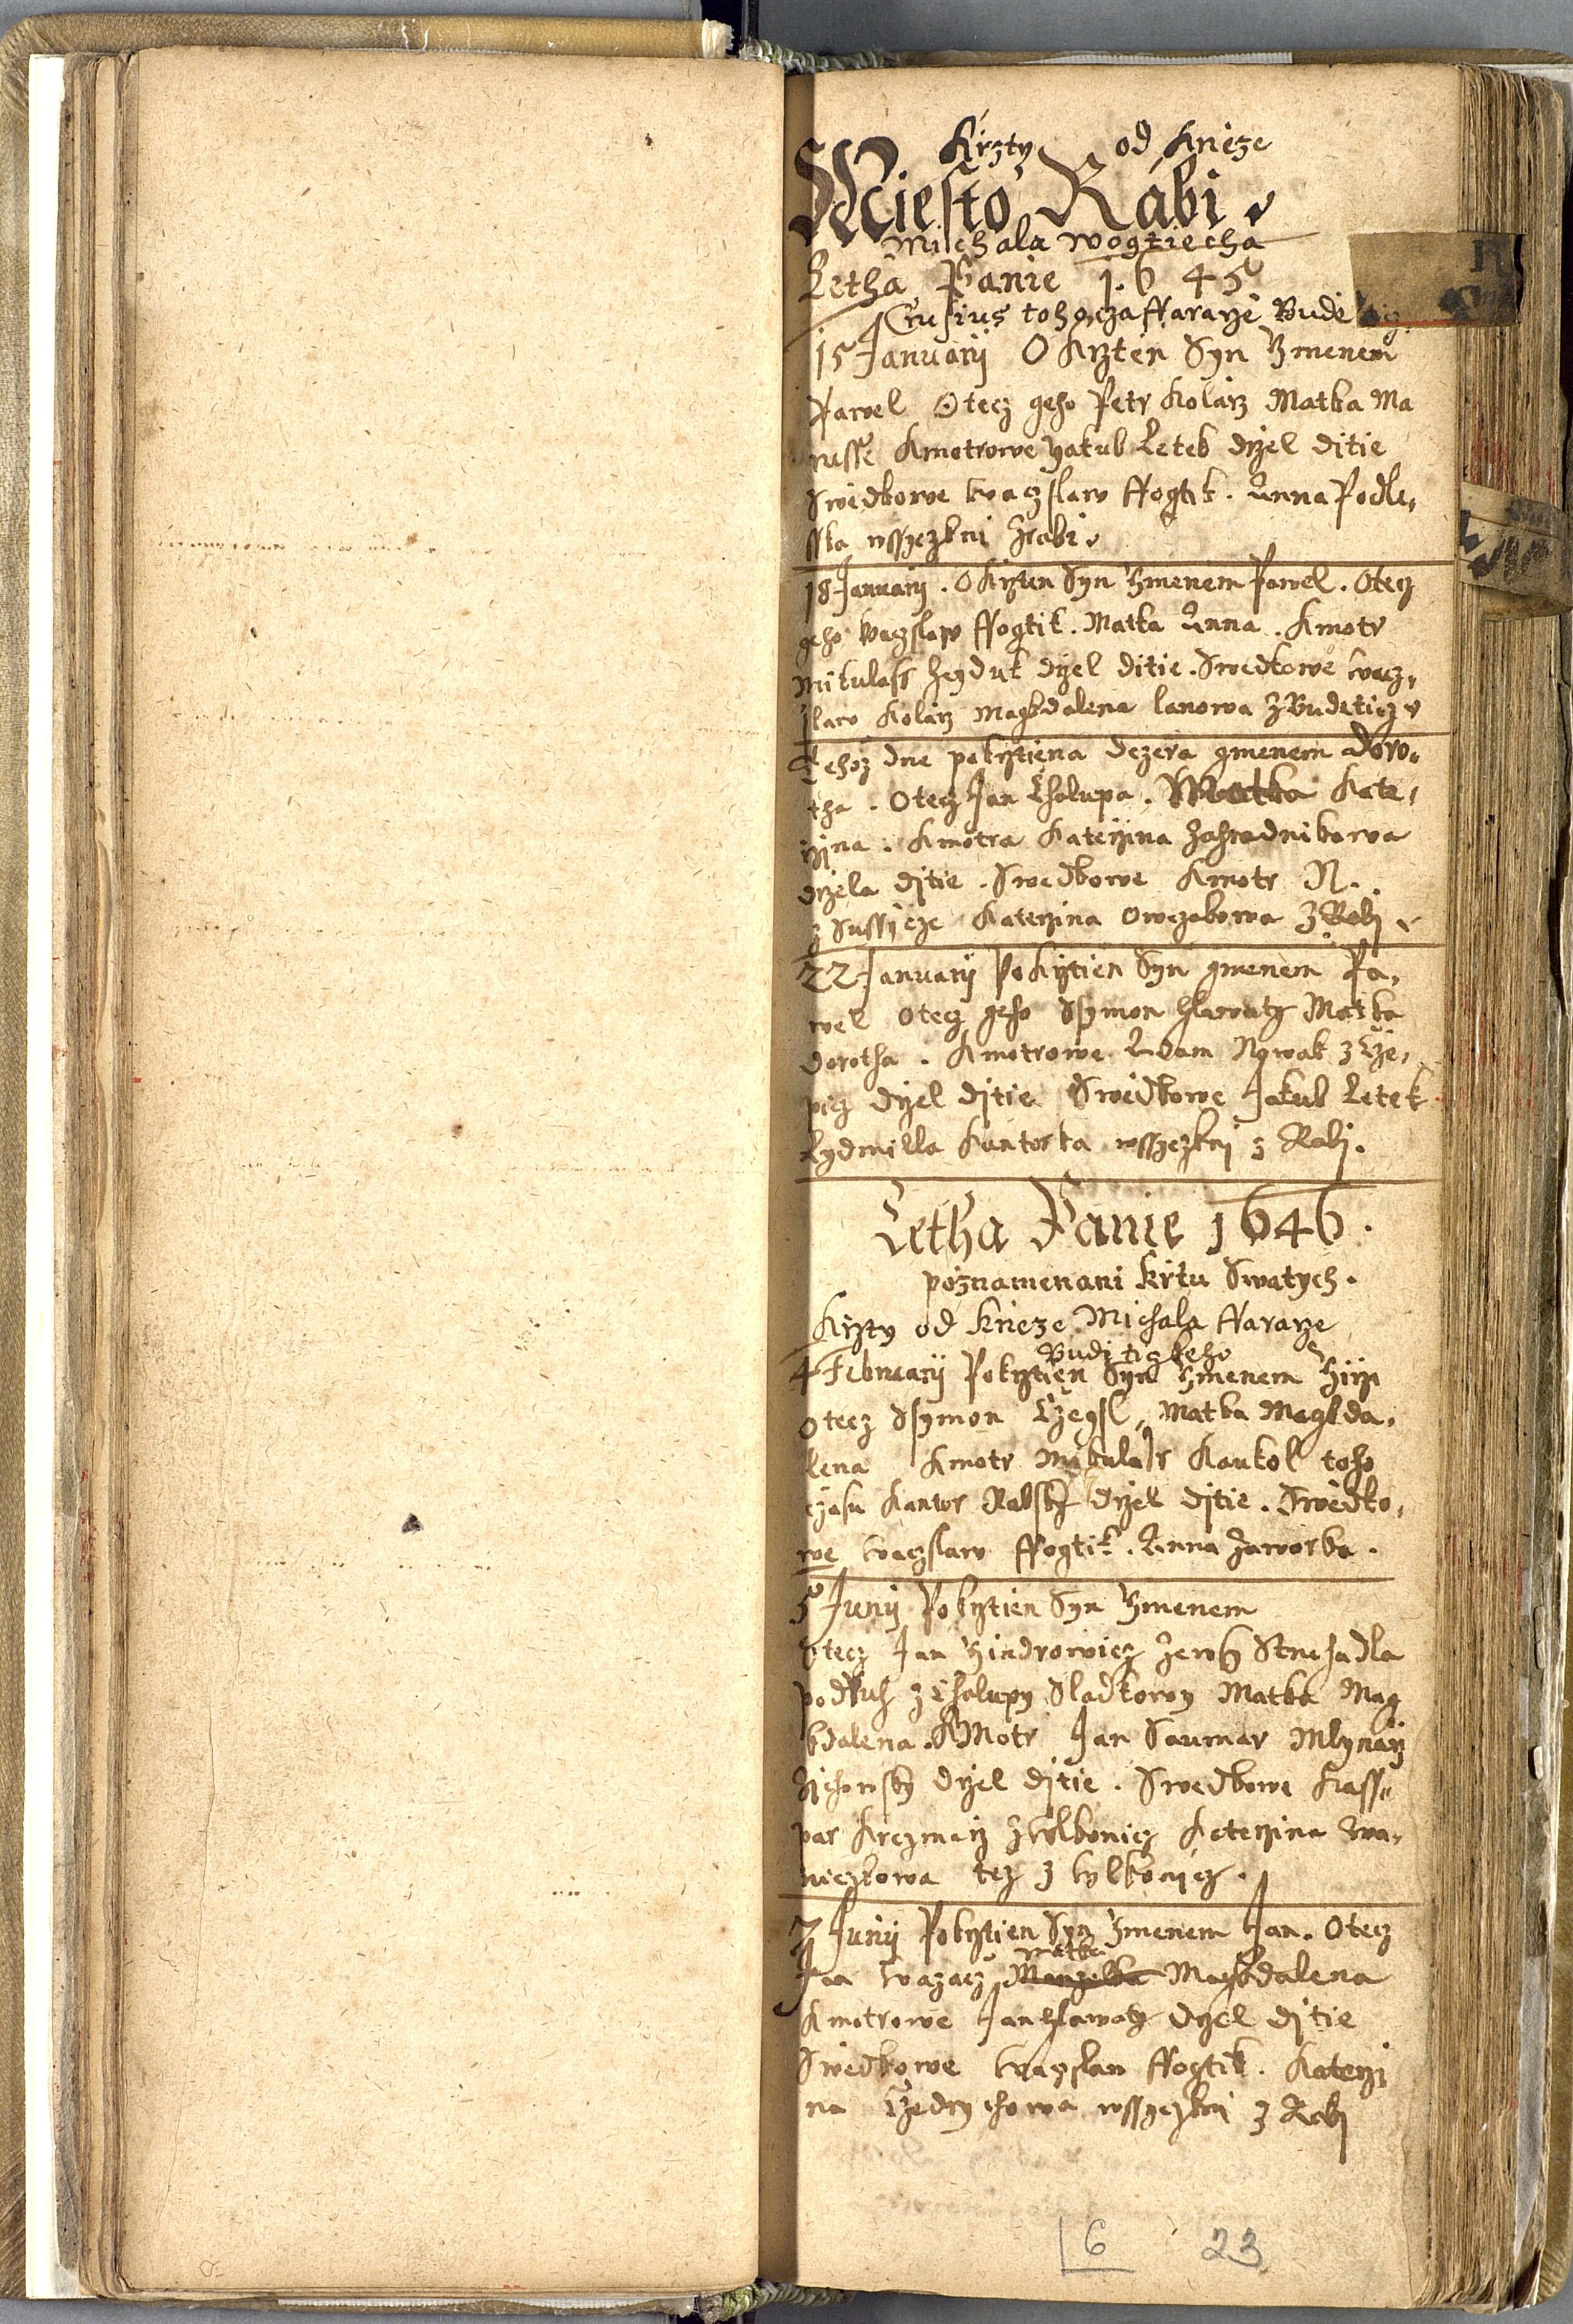 Krzty od Knieze
Miesto Rabi
Michala Wogtiecha
Letha Panie 1645
Crusius toho czas Fararze Budie
15 Januarij Okrzten Syn Ymenem
Pawel Otecz geho Petr Kolarz Matka Ma
russe Kmotrowe Yakub Letek drzel ditie
Swedkowe Waczslaw Ffogtik. Anna Podle,
sska wssyczkni Zrabi
18 Januarij. Okrzten Syn Ymenem Pawel. Otecz
geho Waczslaw Ffogtik. Matka Anna. Kmotr
Mikulass Heyduk drzel ditie. Swedkowe Wacz,
slaw Kolarz Magdalena lanowa Z Budieticz
Tehoz dne pokrztiena dczera gmenem Doro,
tha. Otecz Jan Chalupa. Matka Kate,
rzina. Kmotra Katerzina Zahradnikowa
drzela ditie. Swedkowe Kmotr N.
z Sussycze Katerzina Owczakowa Z Rabj
22 Januarij Pokrztien Syn gmenem Pa,
wel Otecz geho Ssymon Hlawatz Matka
Dorotha. Kmotrowe Adam Nowak z Cze,
picz drzel djtie Swedkowe Jakub Letek
Lydmilla Kantorka wssyczknj z Rabj.
Letha Panie 1646.
poznamenani krztu Swatych.
Krzty od Knieze Michala Ffararze
Budjticzkeho
4 Februarij Pokrztien Syn Ymenem Yirzi
Otecz Ssymon Czegsl Matka Magda,
lena Kmotr Mikulass Kaukol toho
czasu Kantor Rabsky drzel djtie. Swedko,
we Waczslaw Ffogtik. Anna Jaworka.
5 Junij Pokrztien Syn Ymenem
Otecz Jan Yindrowicz Strehadla
podruh z Chalupy Sladkowy Matka Mag
dalena. Kmotr Jan Saumar Mlynarz
Zichowsky drzel djtie. Swedkowe Kass,
par Krczmarz Z Wlkonicz Katerzina Wa,
niczkowa tez z Wlkonicz.
7 Junij Pokrztien Syn Ymenem Jan. Otecz
Matka
Jan Wazacz Manzelka Magdalena
Kmotrowe Jan Hlawatz drzel djtie
Swedkowe Waczslaw Ffogtik. Katerzi
na Czedrychowa wssyczknj z Rabj
6 23